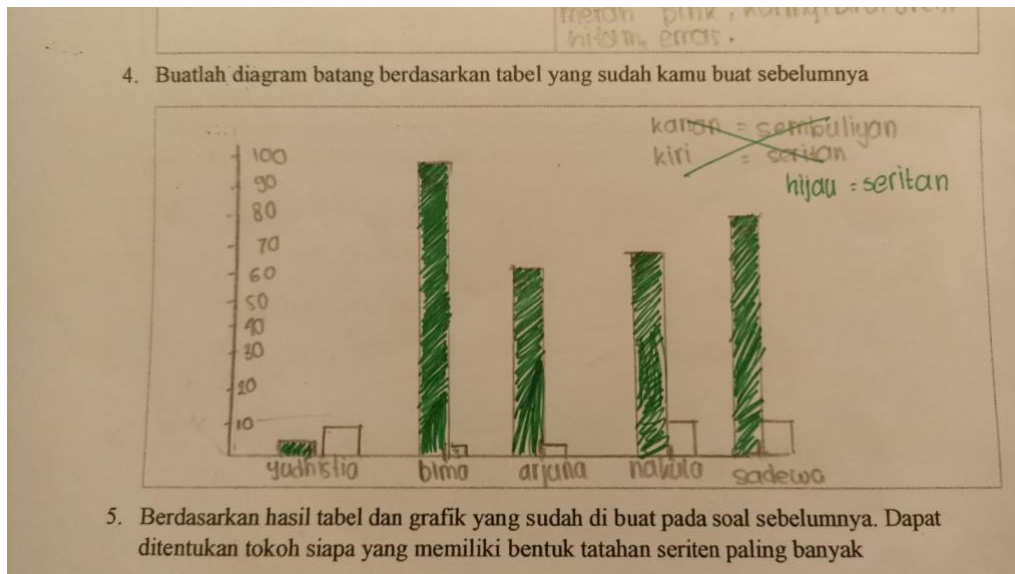 merah pink, kuning,
hitam, emas.
4. Buatlah diagram batang berdasarkan tabel yang sudah kamu buat sebelumnya
kanan = sembuliyan
kiri = seritan
hijau = seritan
100
90
80
70
60
50
40
30
20
10
yudhistia
bima
arjuna
nakula
sadewa
5. Berdasarkan hasil tabel dan grafik yang sudah di buat pada soal sebelumnya. Dapat
ditentukan tokoh siapa yang memiliki bentuk tatahan seriten paling banyak